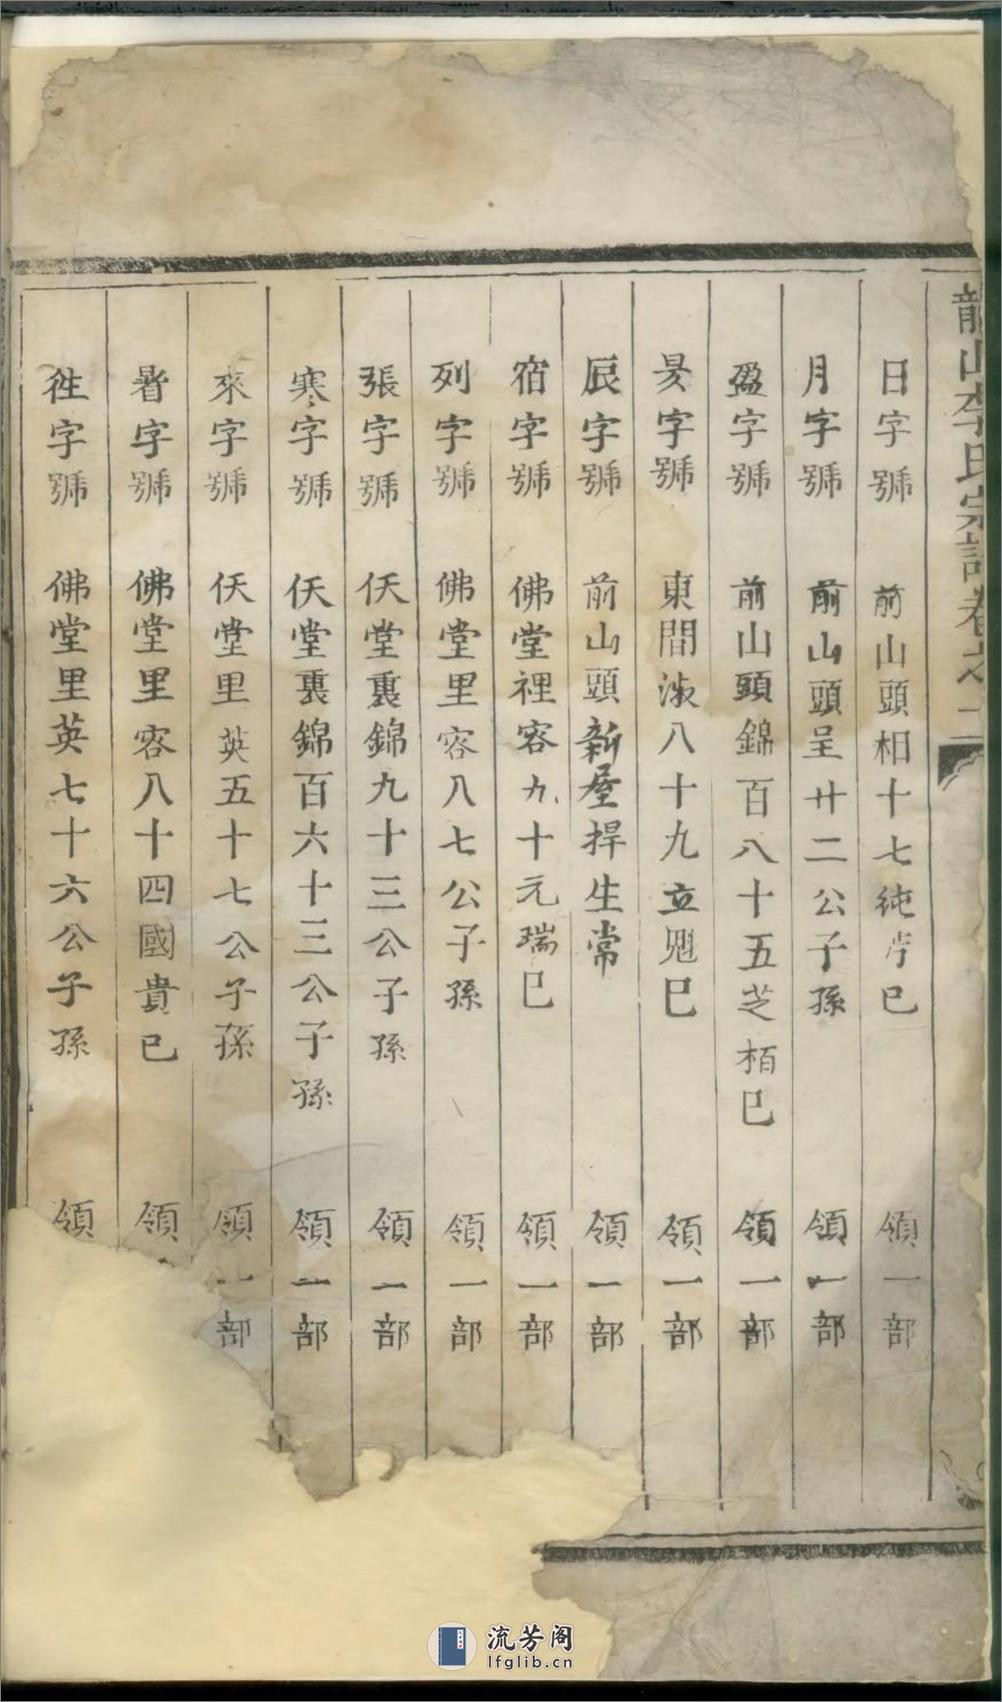 龍山李氏宗譜卷之二
日字號 前山頭相十七純已 領一部
月字號 前山頭呈廿二公子孫 領一部
盈字號 前山頭錦百八十五芝栢已 領一部
昃字號 東間漵八十九立魁巳 領一部
辰字號 前山頭新屋捍生常 領一部
宿字號 佛堂裡容九十元瑞巳 領一部
列字號 佛堂里容八七公子孫 領一部
張字號 仸堂裏錦九十三公子孫 領一部
寒字號 仸堂裏錦百六十三公子孫 領一部
來字號 仸堂里英五十七公子孫 領一部
暑字號 佛堂里容八十四國貴已 領
徃字號 佛堂里英七十六公子孫 領
流芳阁
lfglib.cn